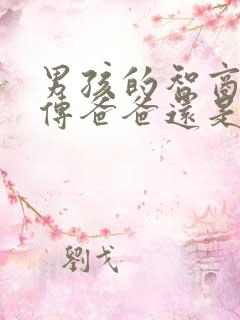 男孩的智商
傳爸爸還是
劉戈